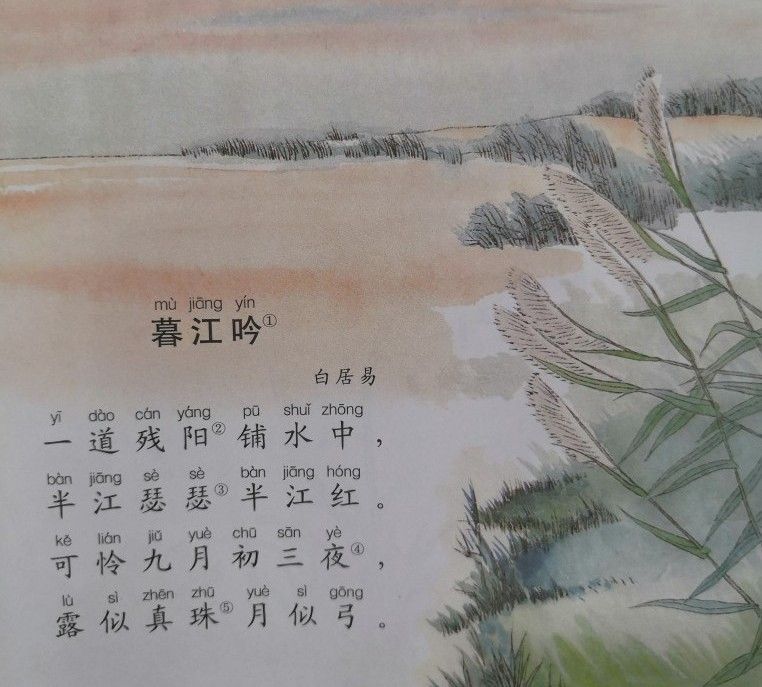 mù jiāng yín
暮江吟①
白居易
yī dào cán yáng pū shuǐ zhōng
一道残阳②铺水中，
bàn jiāng sè sè bàn jiāng hóng
半江瑟瑟③半江红。
kě lián jiǔ yuè chū sān yè
可怜九月初三夜④，
lù sì zhēn zhū yuè sì gōng
露似真珠⑤月似弓。